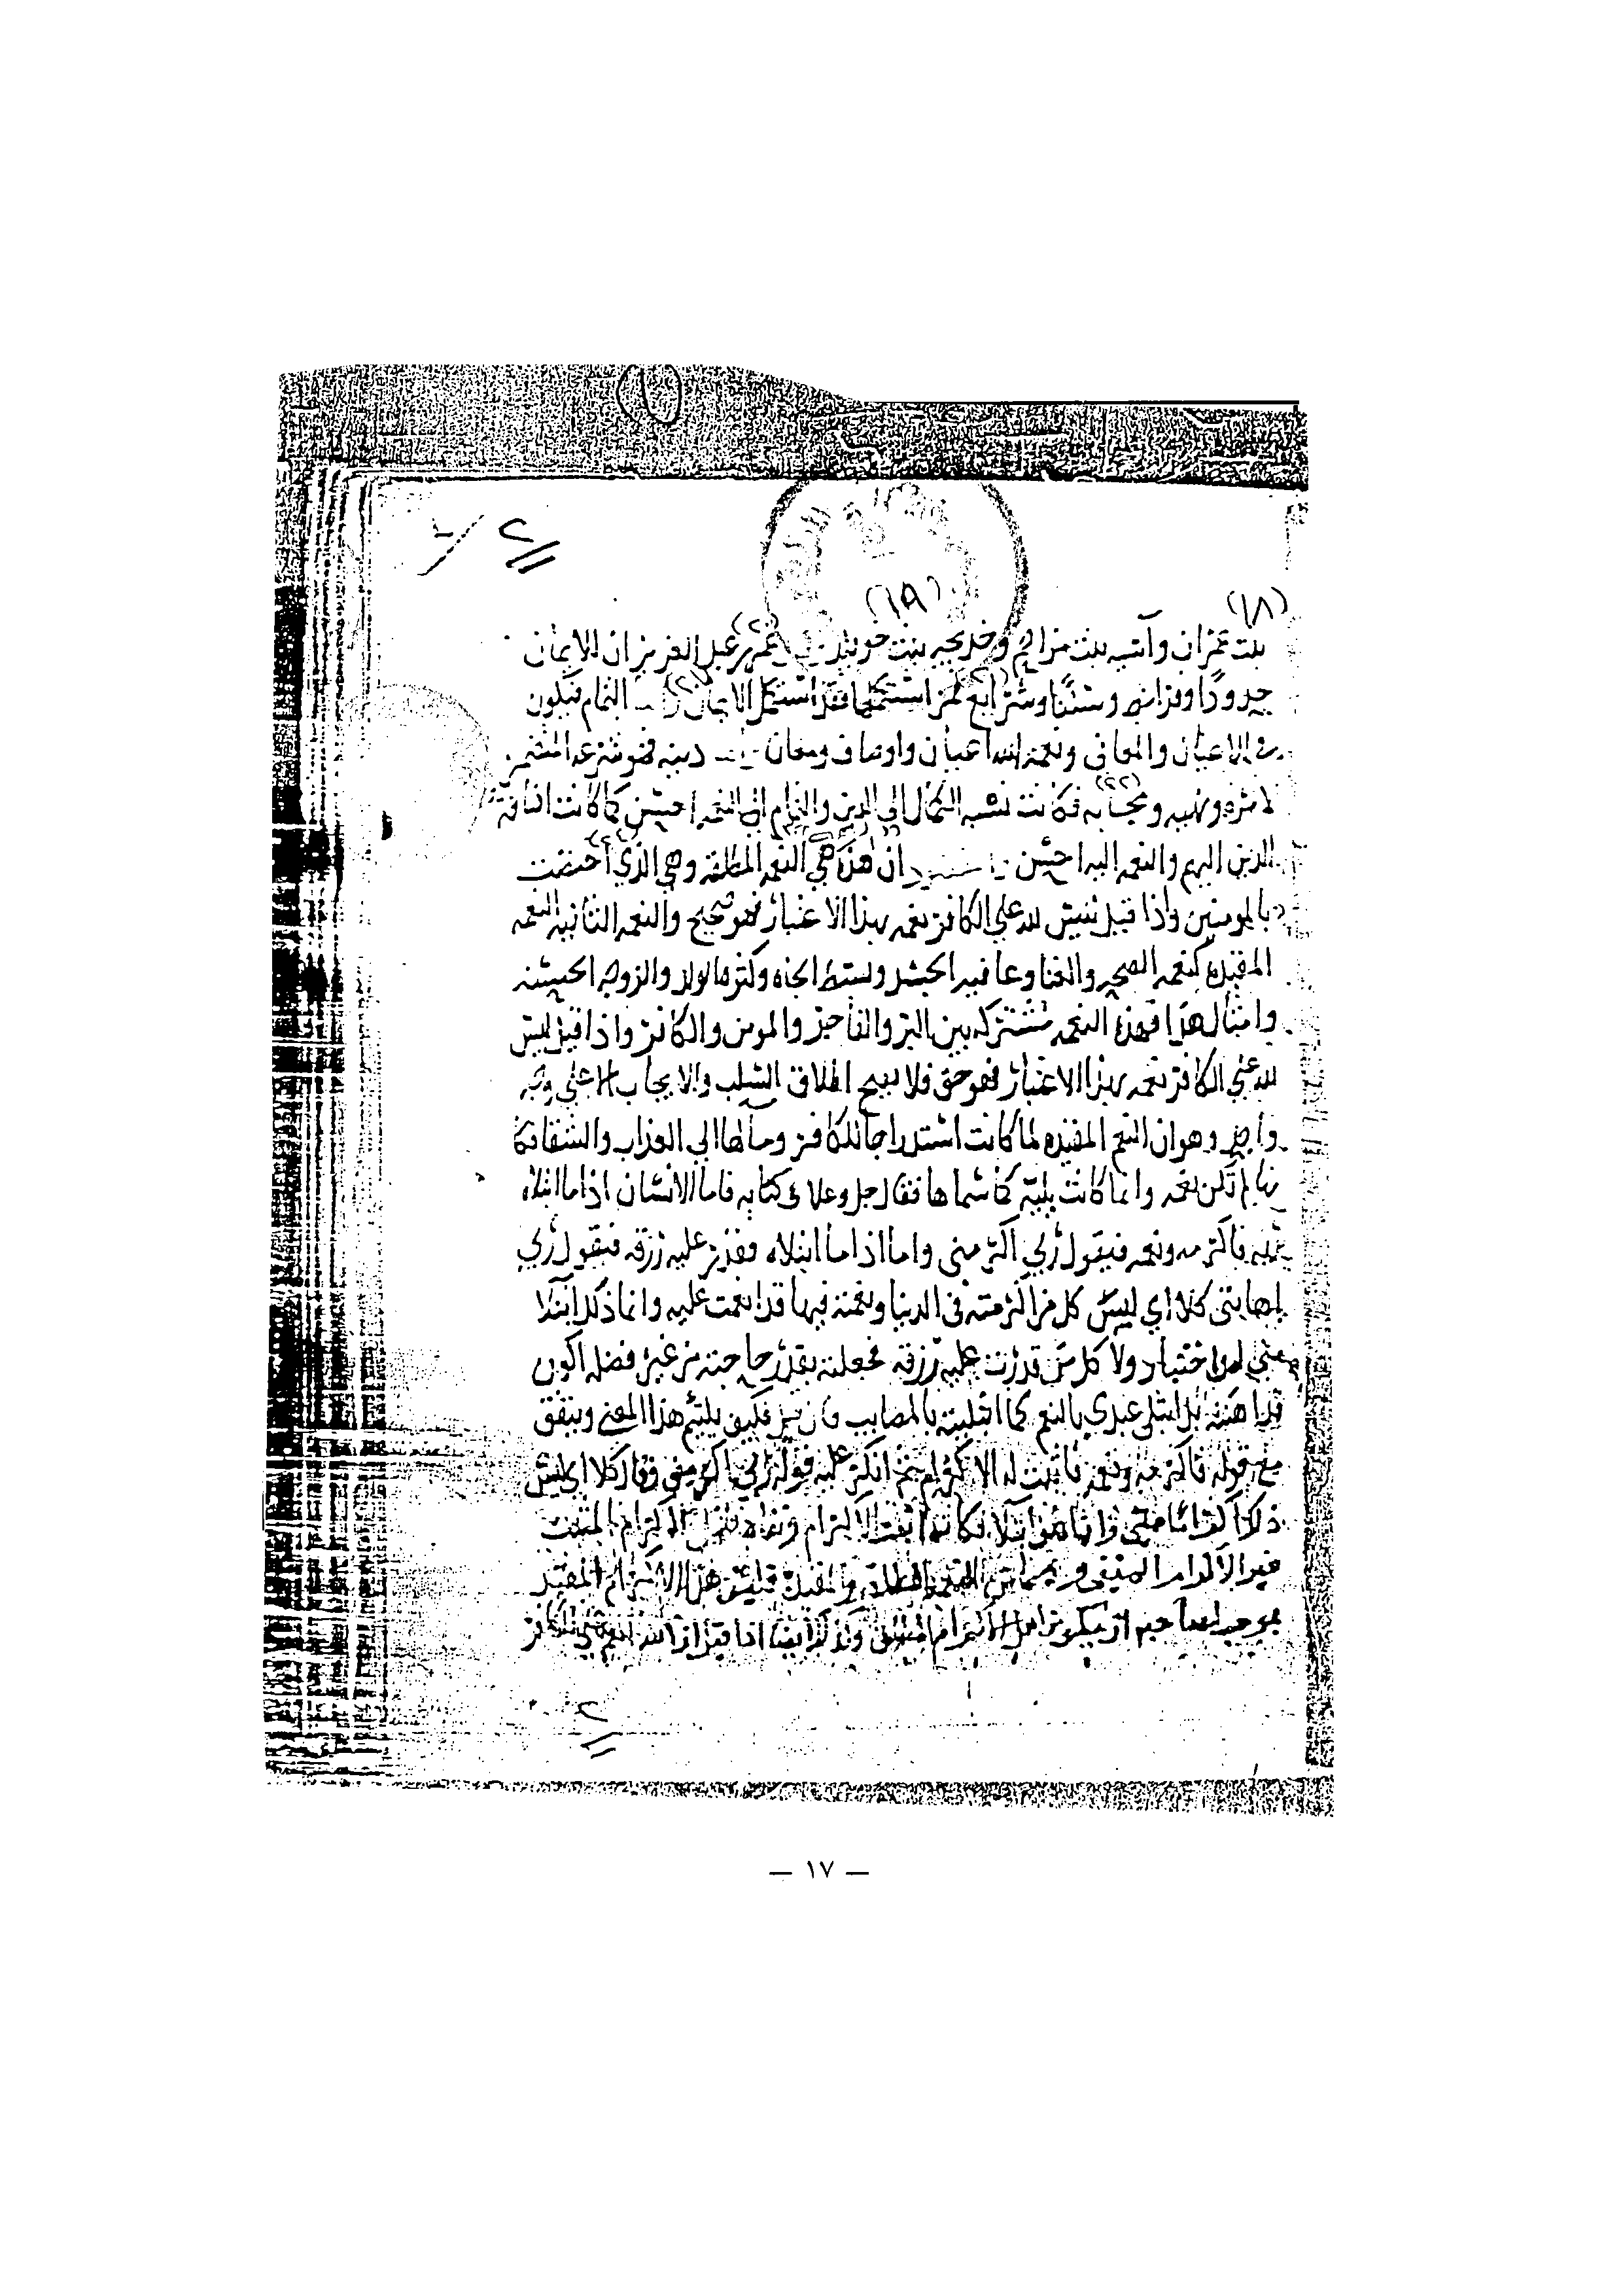 (١٨) (١٩)
بنت عمران وآسيه بنت مزاحم وخديجه بنت خويلد عمر بن عبد العزيز ان للايمان (٢٠)
حدودا وفرايض وسننا وشرايع فمن استكملها فقد استكمل الايمان (٢١) التمام فيكون
في الاعيان والمعاني ونعمه الله اعيان واوصاف ومعان دينه فهو شرعه المتضمن
لامره ونهيه ومحابه فكانت نسبه الكمال الى الدين والتمام الى النعمه احسن كما كانت اضافة (٢٢)
الدين اليهم والنعمه اليه احسن ان هذه هي النعمه المطلقه وهي الذي اختصت (٢٤)
بالمومنين واذا قيل ليس لله علي الكافر نعمه بهذا الاعتبار فهو صحيح والنعمه الثانيه النعمه
المقيده كنعمه الصحه والغنا وعافيه الجسد وبسط الجاه وكثره الولد والزوجه الحسنه
وامثال هذا فهذه النعمه مشتركه بين البر والفاجر والمومن والكافر واذا قيل ليس
لله علي الكافر نعمه بهذا الاعتبار فهو حق فلا يصح اطلاق السلب والايجاب الا علي وجه
واحد وهو ان النعم المقيده لما كانت استدراجا للكافر ومآلها الي العذاب والشقا فكا
نها لم تكن نعمه وانما كانت بليه كما سماها فقال جل وعلا في كتابه فاما الانسان اذا ما ابتلاه
ربه فاكرمه ونعمه فيقول ربي اكرمني واما اذا ما ابتلاه وقدر عليه رزقه فيقول ربي
اهانني كلا اي ليس كل من اكرمته في الدنيا ونعمته فيها قد انعمت عليه وانما ذلك ابتلا
مني له واختبار ولا كل من قدرت عليه رزقه فجعلته بقدر حاجته من غير فضله اكون
قد اهنته بل ابتلي عبدي بالنعم كما ابتليته بالمصايب فان قيل فكيف يلتئم هذا المعني ويتفق
مع قوله فاكرمه ونعمه فاثبت له الاكرام ثم انكر عليه قوله ربي اكرمني وقال كلا اي ليس
ذلك اكراما مني وانما هو ابتلا فكانه اثبت الاكرام ونفاه قيل الاكرام المثبت
غير الاكرام المنفي وهما من جنس النعمه المطلقه والمقيده فليس هذا الاكرام المقيد
بموجب لصاحبه ان يكون من اهل الاكرام المطلق وكذلك ايضا اذا قيل ان الله انعم علي الكافر
— ١٧ —